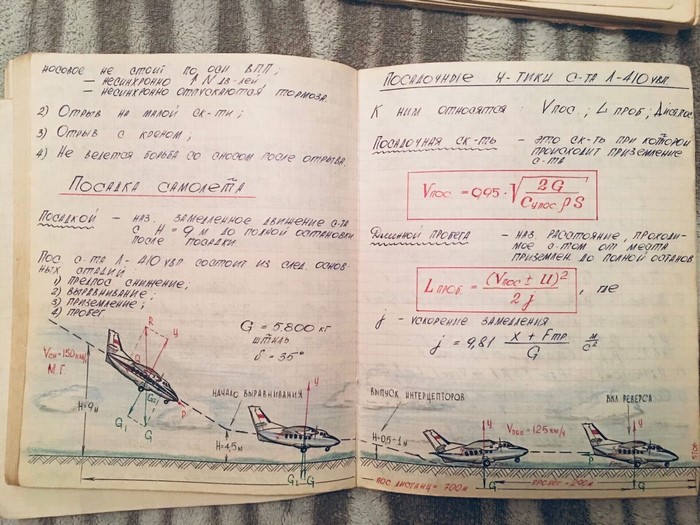 носовое не стоит по оси ВПП;
— несинхронно ↑ N дв-лей;
— несинхронно отпускаются тормоза.
2) Отрыв на малой ск-ти;
3) Отрыв с креном;
4) Не ведется борьба со сносом после отрыва.
Посадка самолета
Посадкой — наз. замедленное движение с-та
с H = 9 м до полной остановки
после посадки.
Пос с-та Л-410 увп состоит из след. основ-
ных стадий
1) предпос снижение;
2) выравнивание;
3) приземление;
4) пробег
G = 5.800 кг
штиль
δ = 35°
Vсн = 150 км/ч
М.Г.
R
Y
Q
G₂
G₁
G
P
H = 9м
начало выравнивания
H = 4,5 м
Y
G₁
G
Посадочные х-тики с-та Л-410 увп.
К ним относятся: Vпос; L проб;
Посадочная ск-ть — это ск-ть при которой
происходит приземление
с-та
Vпос = 0,95 · √ 2G / Cyпос ρ S
Длинной пробега — наз. расстояние, проходи-
мое с-том от места
приземлен. до полной останов
L проб. = (Vпос ± U)² / 2j , где
j - ускорение замедления
j = 9,81 X + Fтр. / G м/с²
выпуск интерцепторов
H = 0,5-1 м
Y
Vпос = 125 км/ч
P
G
вкл реверса
Y
G
STOP
пос. дистанц = 700м
пробег = 290м